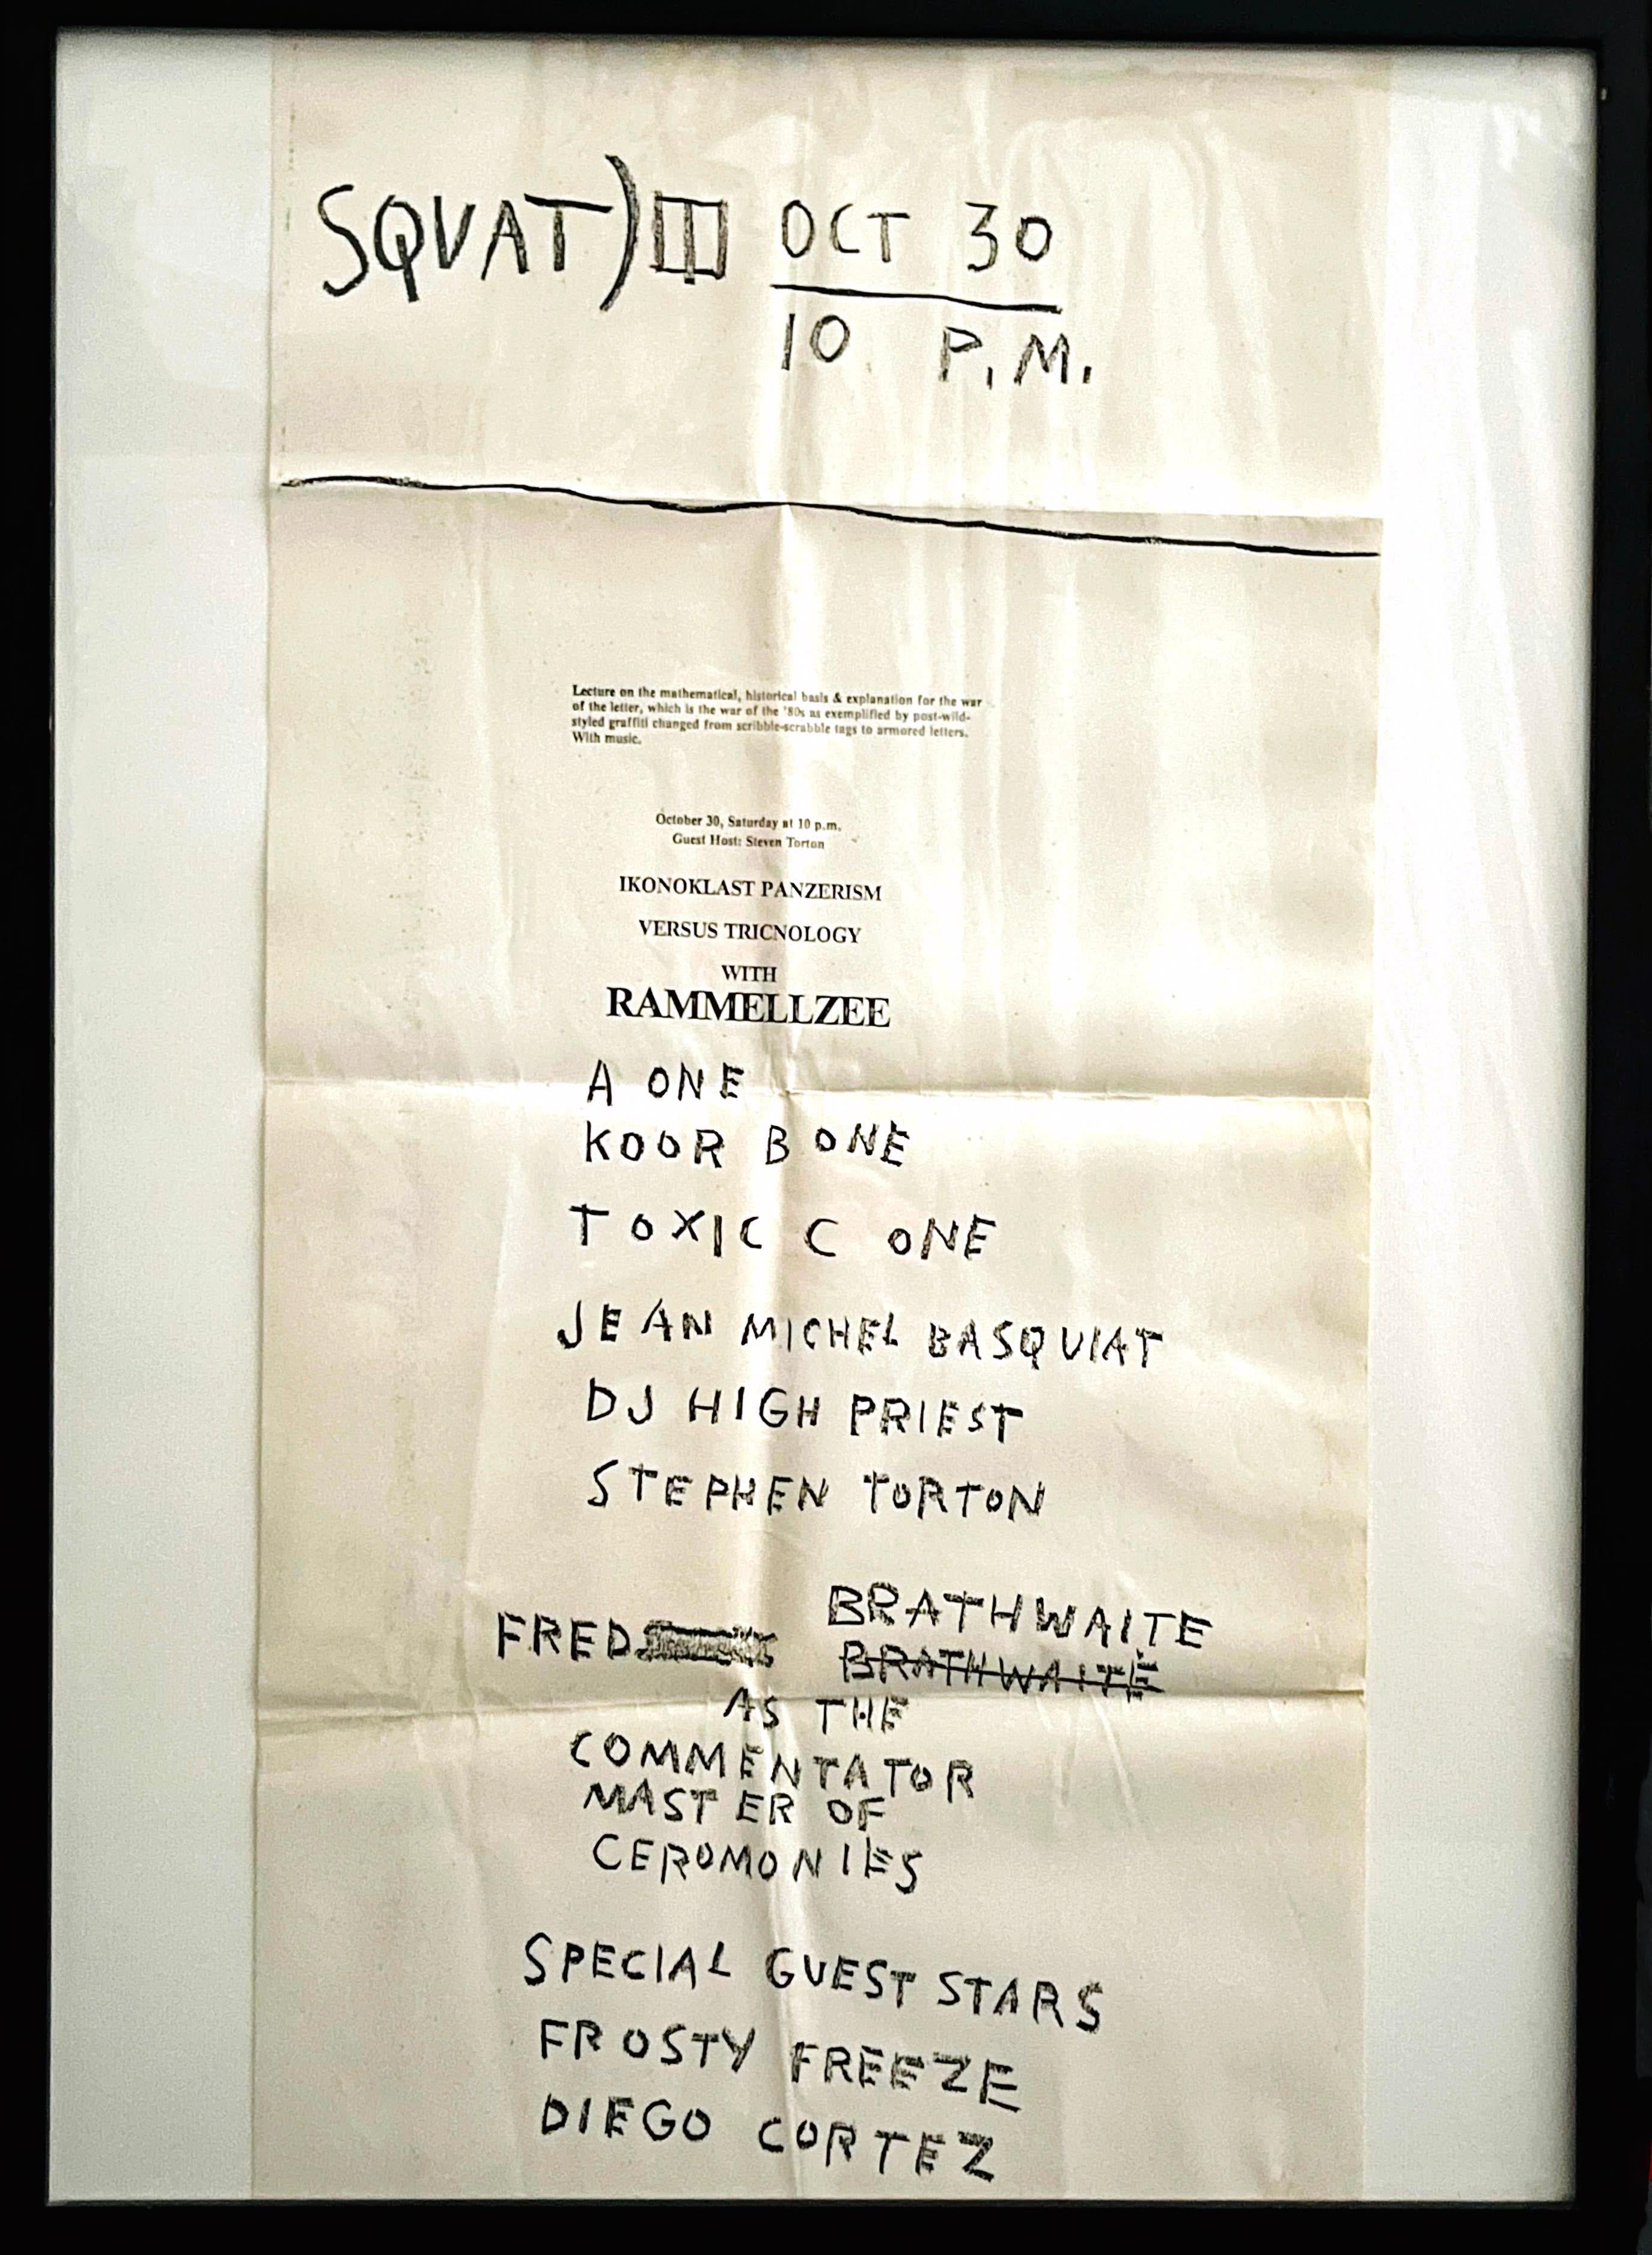 SQVAT) OCT 30
10 P.M.
Lecture on the mathematical, historical basis & explanation for the war
of the letter, which is the war of the '80s as exemplified by post-wild-
styled graffiti changed from scribble-scrabble tags to armored letters.
With music.
October 30, Saturday at 10 p.m.
Guest Host: Steven Torton
IKONOKLAST PANZERISM
VERSUS TRICNOLOGY
WITH
RAMMELLZEE
A ONE
KOOR B ONE
TOXIC C ONE
JEAN MICHEL BASQVIAT
DJ HIGH PRIEST
STEPHEN TORTON
FRED BRATHWAITE
BRATHWAITE
AS THE
COMMENTATOR
MASTER OF
CEROMONIES
SPECIAL GVEST STARS
FROSTY FREEZE
DIEGO CORTEZ